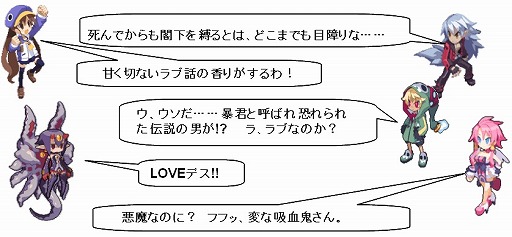 死んでからも閣下を縛るとは、どこまでも目障りな……
甘く切ないラブ話の香りがするわ！
ウ、ウソだ……暴君と呼ばれ恐れられ
た伝説の男が!?　ラ、ラブなのか？
LOVEデス!!
悪魔なのに？　フフッ、変な吸血鬼さん。